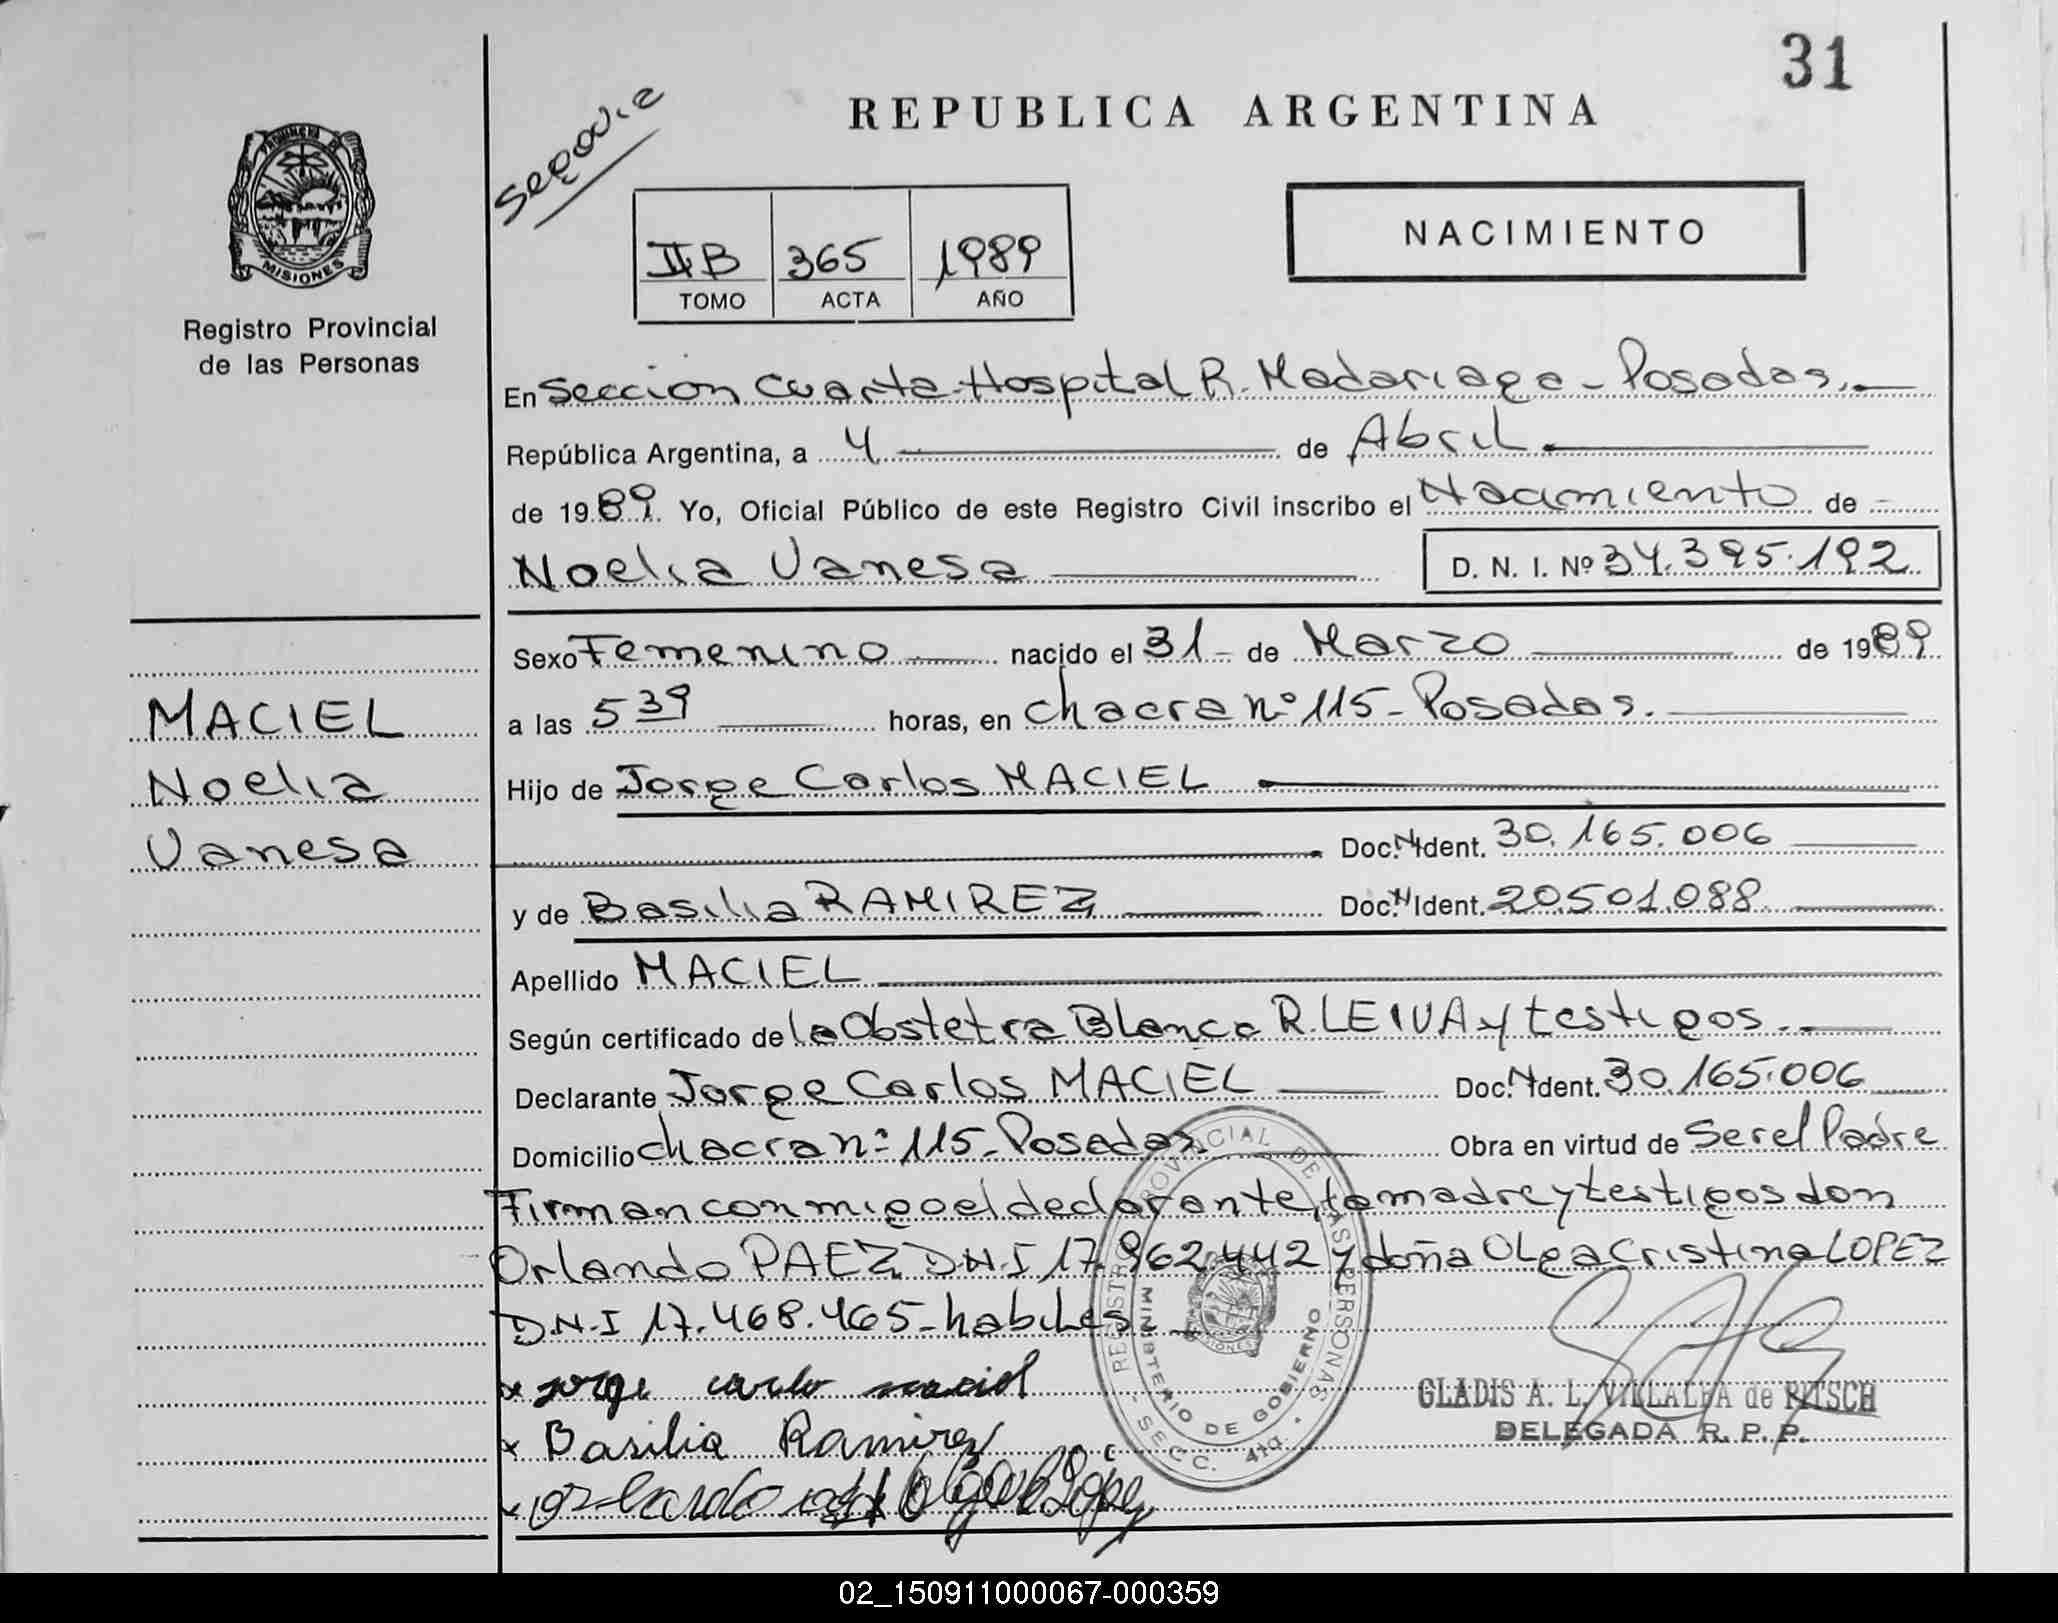 31
Segovia
REPUBLICA ARGENTINA
PROVINCIA DE
MISIONES
Registro Provincial
de las Personas
II B 365 1989
TOMO ACTA AÑO
NACIMIENTO
En Sección Cuarta-Hospital R. Madariaga - Posadas.
República Argentina, a 4 de Abril
de 1989. Yo, Oficial Público de este Registro Civil inscribo el Nacimiento de
Noelia Vanesa D. N. I. Nº 34.395.192
Sexo Femenino nacido el 31 de Marzo de 1989
a las 5 39 horas, en chacra nº 115 - Posadas.
Hijo de Jorge Carlos MACIEL
Doc. N. Ident. 30.165.006
y de Basilia RAMIREZ Doc. N Ident. 20.501.088
Apellido MACIEL
Según certificado de la Obstetra Blanca R. LEIVA y testigos.
Declarante Jorge Carlos MACIEL Doc. N. Ident. 30.165.006
Domicilio chacra nº 115 - Posadas Obra en virtud de Ser el Padre
Firman conmigo el declarante, la madre y testigos don
Orlando PAEZ D.N.I 17.962.442 y doña Olga Cristina LOPEZ
D.N.I 17.468.465 - habiles.
MACIEL
Noelia
Vanesa
x jorge carlo maciel
x Basilia Ramirez
REGISTRO PROVINCIAL DE LAS PERSONAS
MINISTERIO DE GOBIERNO
MISIONES
- SECC. 4ta. -
GLADIS A. L. VILLALBA de RITSCH
DELEGADA R. P. P.
02_150911000067-000359